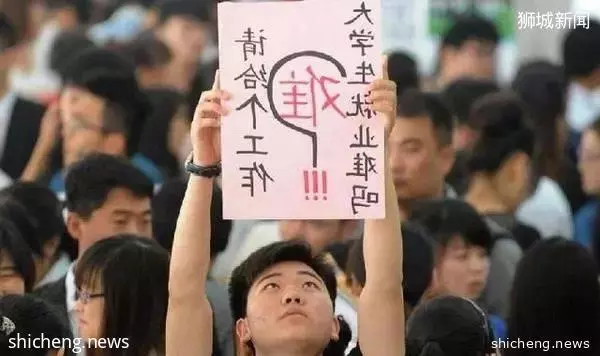 狮城新闻
大学生就业难吗
难
请给个工作
!!!
shicheng.news
shicheng.news